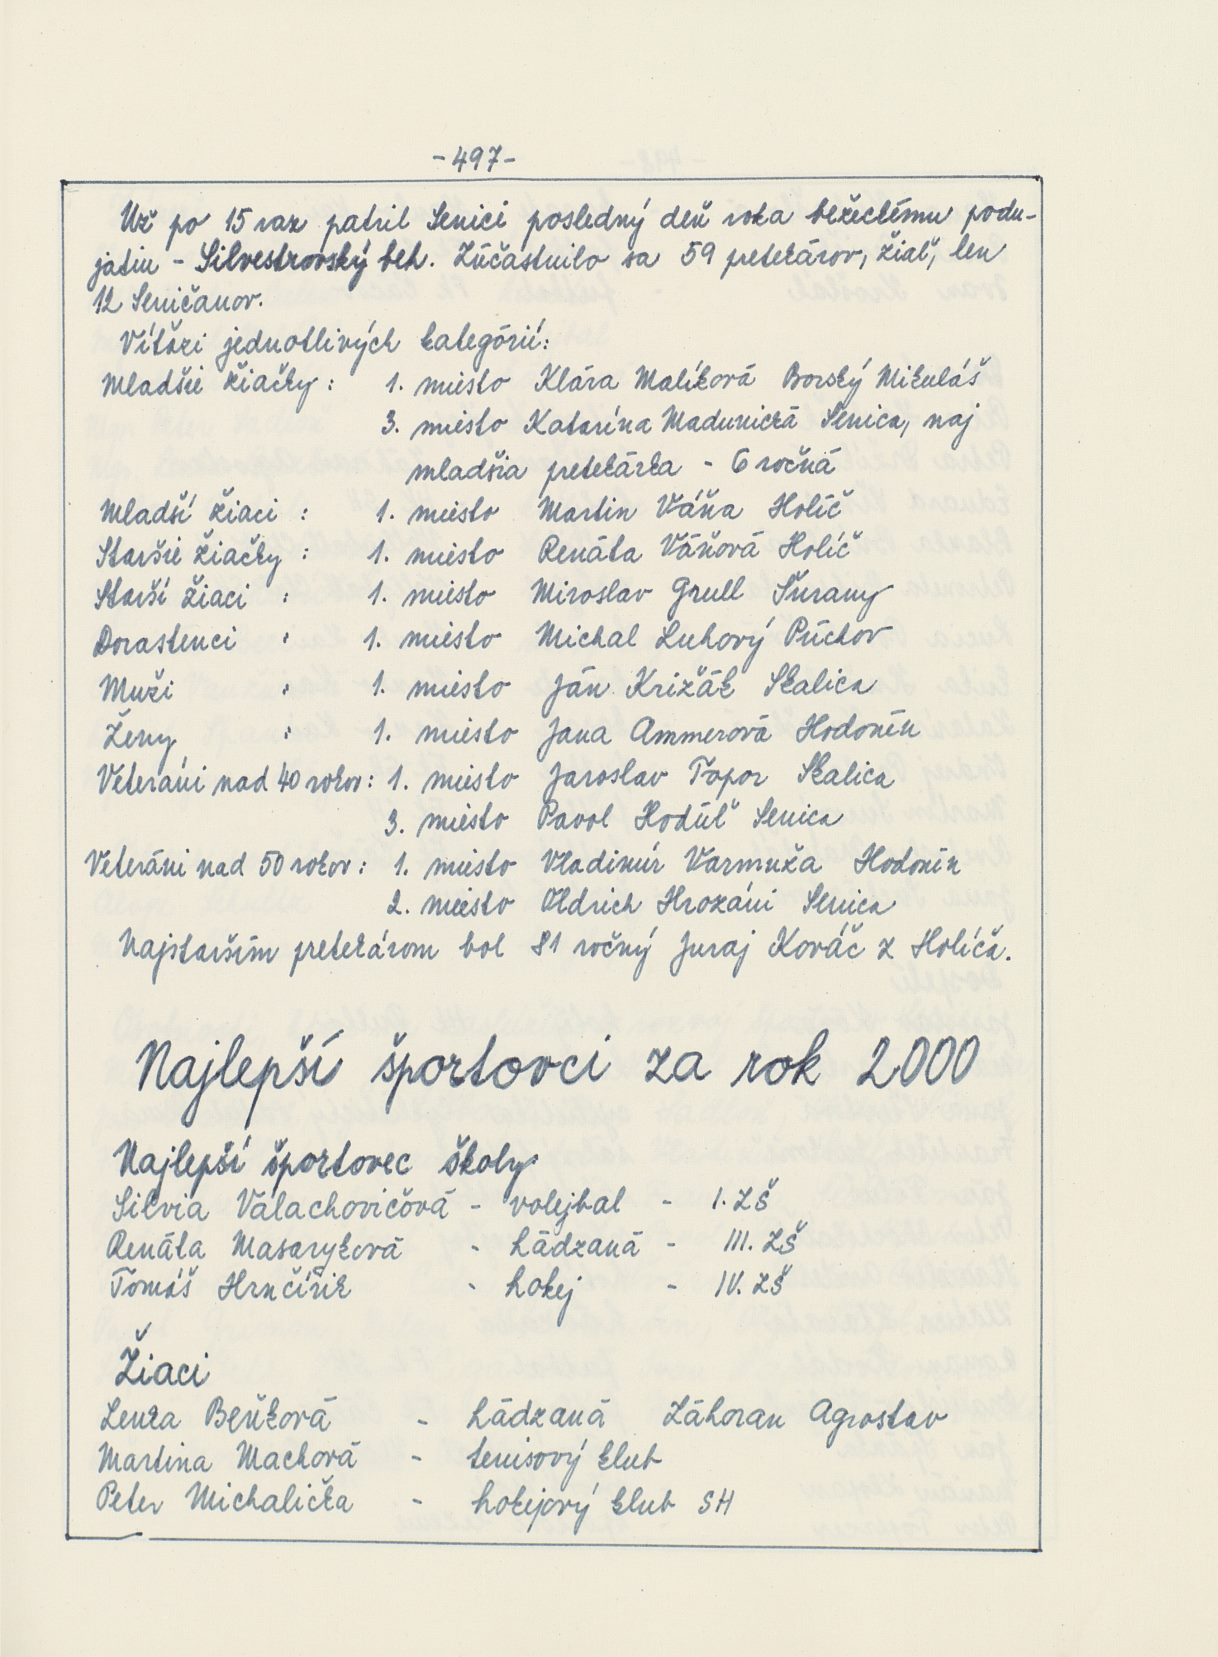 -497-
Už po 15 raz patril Senici posledný deň roka bežeckému podu-
jatiu - Silvestrovský beh. Zúčastnilo sa 59 pretekárov, žiaľ, len
12 Seničanov.
Víťazi jednotlivých kategórií:
Mladšie žiačky: 1. miesto Klára Malíková Borský Mikuláš
3. miesto Katarína Madunická Senica, naj
mladšia pretekárka - 6 ročná
Mladší žiaci : 1. miesto Martin Váňa Holíč
Staršie žiačky : 1. miesto Renáta Váňová Holíč
Starší žiaci : 1. miesto Miroslav Grull Šurany
Dorastenci : 1. miesto Michal Luhový Púchov
Muži : 1. miesto Ján Križák Skalica
Ženy : 1. miesto Jana Ammerová Hodonín
Veteráni nad 40 rokov: 1. miesto Jaroslav Topor Skalica
3. miesto Pavol Hodúľ Senica
Veteráni nad 50 rokov: 1. miesto Vladimír Varmuža Hodonín
2. miesto Oldrich Hrozáni Senica
Najstarším pretekárom bol 81 ročný Juraj Kováč z Holíča.
Najlepší športovci za rok 2000
Najlepší športovec školy
Silvia Valachovičová - volejbal - I. ZŠ
Renáta Masaryková - hádzaná - III. ZŠ
Tomáš Hrnčírik - hokej - IV. ZŠ
Žiaci
Lenka Beňková - hádzaná Záhoran Agrostav
Martina Machová - tenisový klub
Peter Michalička - hokejový klub SH